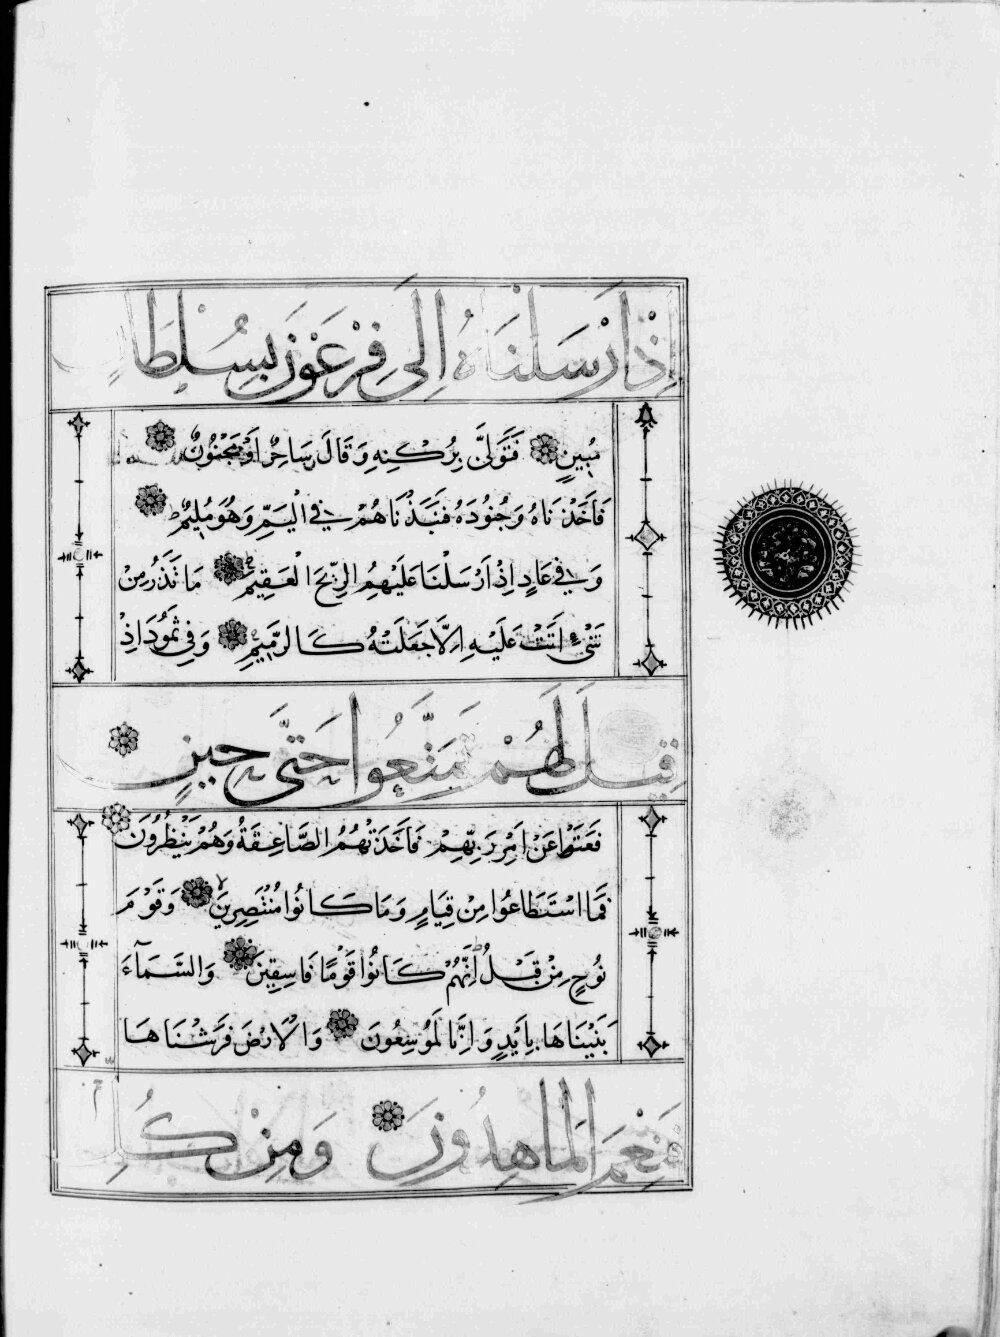 اِذْ اَرْسَلْنَاهُ اِلَى فِرْعَوْنَ بِسُلْطَانٍ
مُبِينٍ فَتَوَلَّى بِرُكْنِهِ وَقَالَ سَاحِرٌ اَوْ مَجْنُونٌ
فَاَخَذْنَاهُ وَجُنُودَهُ فَنَبَذْنَاهُمْ فِي الْيَمِّ وَهُوَ مُلِيمٌ
وَفِي عَادٍ اِذْ اَرْسَلْنَا عَلَيْهِمُ الرِّيحَ الْعَقِيمَ مَا تَذَرُ مِنْ
شَيْءٍ اَتَتْ عَلَيْهِ اِلَّا جَعَلَتْهُ كَالرَّمِيمِ وَفِي ثَمُودَ اِذْ
قِيلَ لَهُمْ تَمَتَّعُوا حَتَّى حِينٍ
فَعَتَوْا عَنْ اَمْرِ رَبِّهِمْ فَاَخَذَتْهُمُ الصَّاعِقَةُ وَهُمْ يَنْظُرُونَ
فَمَا اسْتَطَاعُوا مِنْ قِيَامٍ وَمَا كَانُوا مُنْتَصِرِينَ وَقَوْمَ
نُوحٍ مِنْ قَبْلُ اِنَّهُمْ كَانُوا قَوْمًا فَاسِقِينَ وَالسَّمَآءَ
بَنَيْنَاهَا بِاَيْدٍ وَاِنَّا لَمُوسِعُونَ وَالْاَرْضَ فَرَشْنَاهَا
فَنِعْمَ الْمَاهِدُونَ وَمِنْ كُلِّ